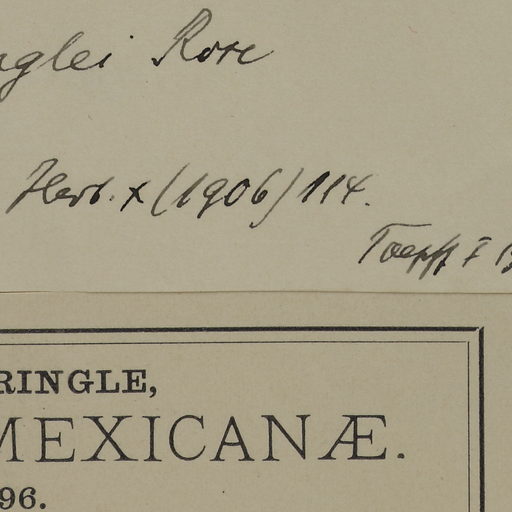 nglei Rose
Herb. x (1906) 114.
Toepff I
RINGLE,
MEXICANÆ.
96.